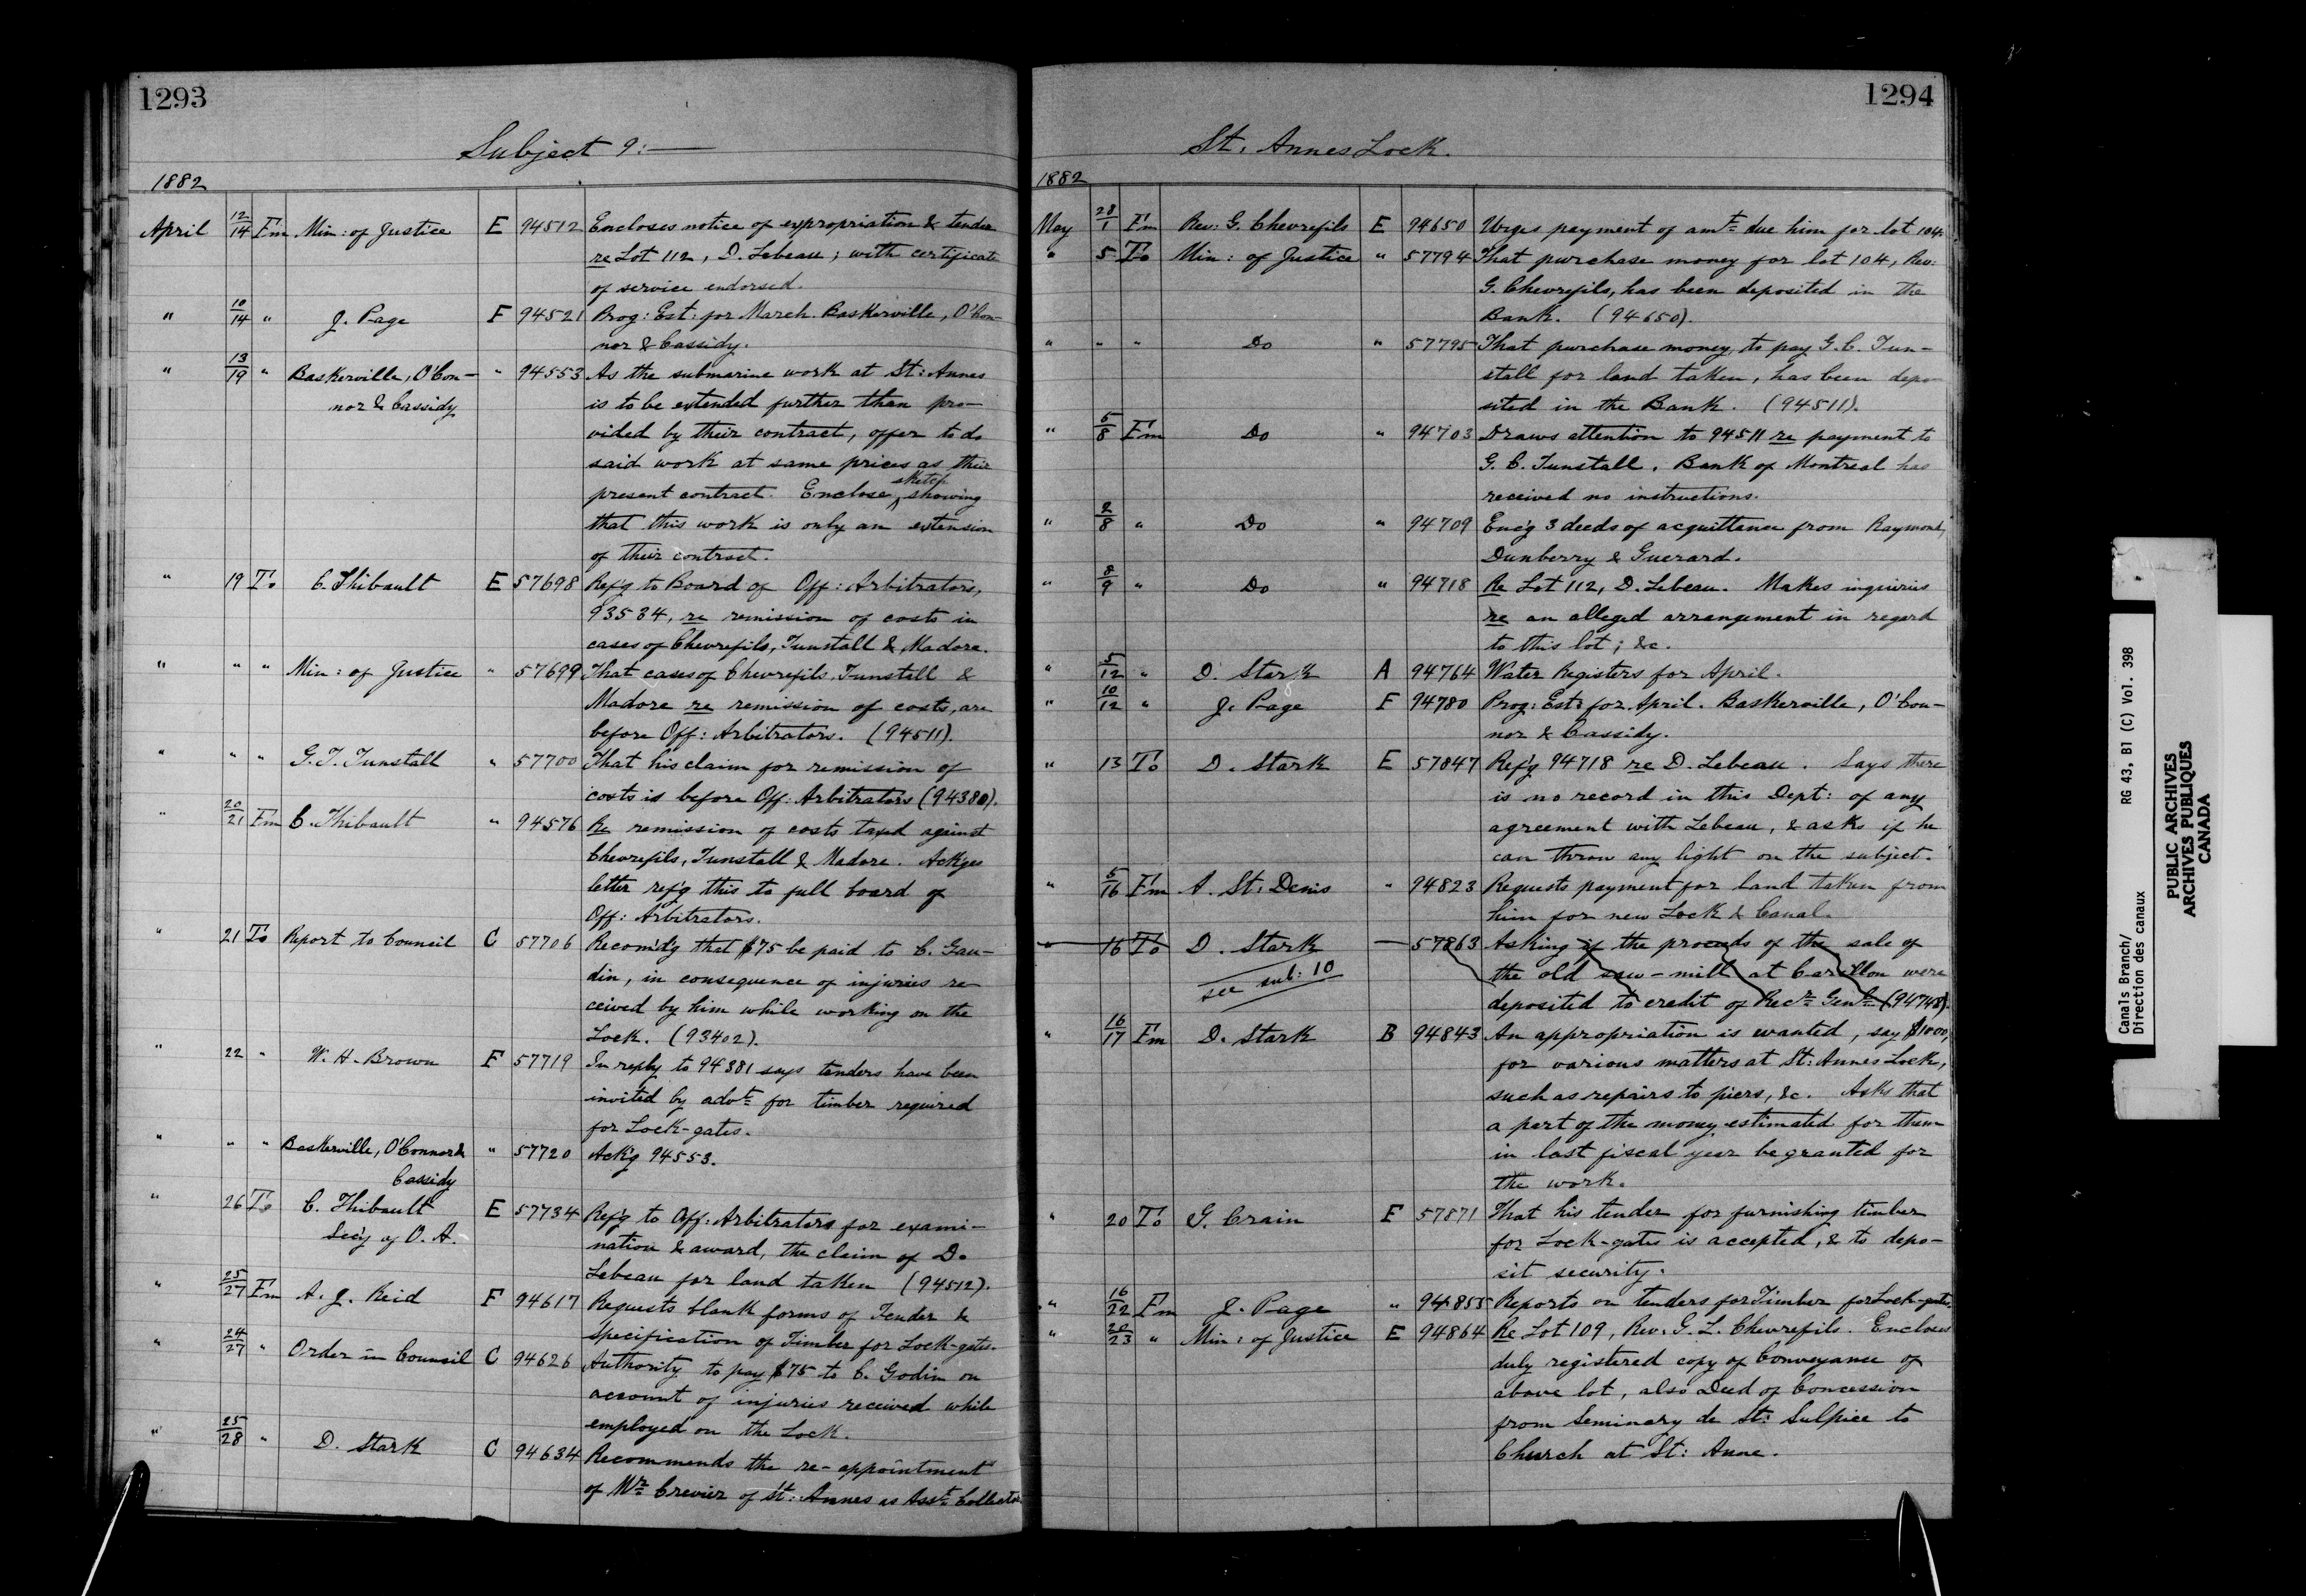 1293
Subject 9:—
1882
April 12/14 Fm Min: of Justice E 94512 Encloses notice of expropriation & tender
re Lot 112, D. Lebeau; with certificate
of service endorsed.
" 10/14 " J. Page F 94521 Prog: Est: for March. Baskerville, O'Con-
nor & Cassidy.
" 13/19 " Baskerville, O'Con- " 94553 As the submarine work at St: Annes
nor & Cassidy is to be extended further than pro-
vided by their contract, offer to do
said work at same prices as their
present contract. Enclose sketch showing
that this work is only an extension
of their contract.
" 19 To C. Thibault E 57698 Ref'g to Board of Off: Arbitrators,
93534, re remission of costs in
cases of Chevrefils, Tunstall & Madore.
" " " Min: of Justice " 57699 That cases of Chevrefils, Tunstall &
Madore re remission of costs, are
before Off: Arbitrators. (94511).
" " " G. T. Tunstall " 57700 That his claim for remission of
costs is before Off: Arbitrators (94380).
" 20/21 Fm C. Thibault " 94576 Re remission of costs taxed against
Chevrefils, Tunstall & Madore. Ack'ges
letter ref'g this to full board of
Off: Arbitrators.
" 21 To Report to Council C 57706 Recom'dg that $75 be paid to C. Gau-
din, in consequence of injuries re-
ceived by him while working on the
Lock. (93402).
" 22 " W. H. Brown F 57719 In reply to 94381 says tenders have been
invited by advt for timber required
for Lock-gates.
" " " Baskerville, O'Connor & " 57720 Ack'g 94553.
Cassidy
" 26 To C. Thibault E 57734 Ref'g to Off: Arbitrators for exami-
Sec'y of O. A. nation & award, the claim of D.
Lebeau for land taken (94512).
" 25/27 Fm A. J. Reid F 94617 Requests blank forms of Tender &
Specification of Timber for Lock-gates.
" 24/27 " Order in Council C 94626 Authority to pay $75 to C. Godin on
account of injuries received while
employed on the Lock.
" 25/28 " D. Stark C 94634 Recommends the re-appointment
of Mr Crevier of St: Annes as Asst Collector
1294
St. Annes Lock.
1882
May 28/1 Fm Rev: G. Chevrefils E 94650 Urges payment of amt due him for lot 104.
" 5 To Min: of Justice " 57794 That purchase money for lot 104, Rev:
G. Chevrefils, has been deposited in the
Bank. (94650).
" " " Do " 57795 That purchase money, to pay G. C. Tun-
stall for land taken, has been depo-
sited in the Bank. (94511).
" 5/8 Fm Do " 94703 Draws attention to 94511 re payment to
G. C. Tunstall. Bank of Montreal has
received no instructions.
" 2/8 " Do " 94709 Enc'g 3 deeds of acquittance from Raymond,
Dunberry & Guerard.
" 8/9 " Do " 94718 Re Lot 112, D. Lebeau. Makes inquiries
re an alleged arrangement in regard
to this lot; &c.
" 5/12 " D. Stark A 94764 Water Registers for April.
" 10/12 " J. Page F 94780 Prog: Est: for April. Baskerville, O'Con-
nor & Cassidy.
" 13 To D. Stark E 57847 Ref'g 94718 re D. Lebeau. Says there
is no record in this Dept: of any
agreement with Lebeau, & asks if he
can throw any light on the subject.
" 5/16 Fm A. St. Denis " 94823 Requests payment for land taken from
him for new Lock & Canal.
" 16 To D. Stark — 57863 Asking if the proceeds of the sale of
see sub: 10 the old saw-mill at Carillon were
deposited to credit of Recr Genl (94748).
" 16/17 Fm D. Stark B 94843 An appropriation is wanted, say $1000,
for various matters at St: Annes Lock,
such as repairs to piers, &c. Asks that
a part of the money estimated for them
in last fiscal year be granted for
the work.
" 20 To G. Crain F 57871 That his tender for furnishing timber
for Lock-gates is accepted, & to depo-
sit security.
" 16/22 Fm J. Page " 94855 Reports on tenders for Timber for Lock-gates.
" 20/23 " Min: of Justice E 94864 Re Lot 109, Rev. G. L. Chevrefils. Encloses
duly registered copy of Conveyance of
above lot, also Deed of Concession
from Seminary de St: Sulpice to
Church at St: Anne.
Canals Branch/ RG 43, B1 (C) Vol. 398
Direction des canaux
PUBLIC ARCHIVES
ARCHIVES PUBLIQUES
CANADA